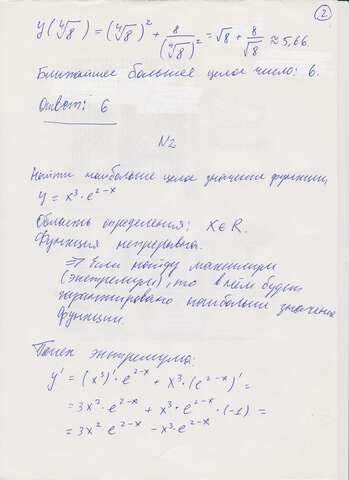 2
y(∜8) = (∜8)² + 8/(∜8)² = √8 + 8/√8 ≈ 5,66
Ближайшее большее целое число: 6.
Ответ: 6
N2
Найти наибольшее целое значение функции
y = x³ · e^(2-x)
Область определения: X∈R.
Функция непрерывна.
⇒ Если найду максимум
(экстремум), то в нём будет
гарантировано наибольшее значение
функции.
Поиск экстремума:
y' = (x³)' · e^(2-x) + x³ · (e^(2-x))' =
= 3x² · e^(2-x) + x³ · e^(2-x) · (-1) =
= 3x² · e^(2-x) - x³ · e^(2-x)